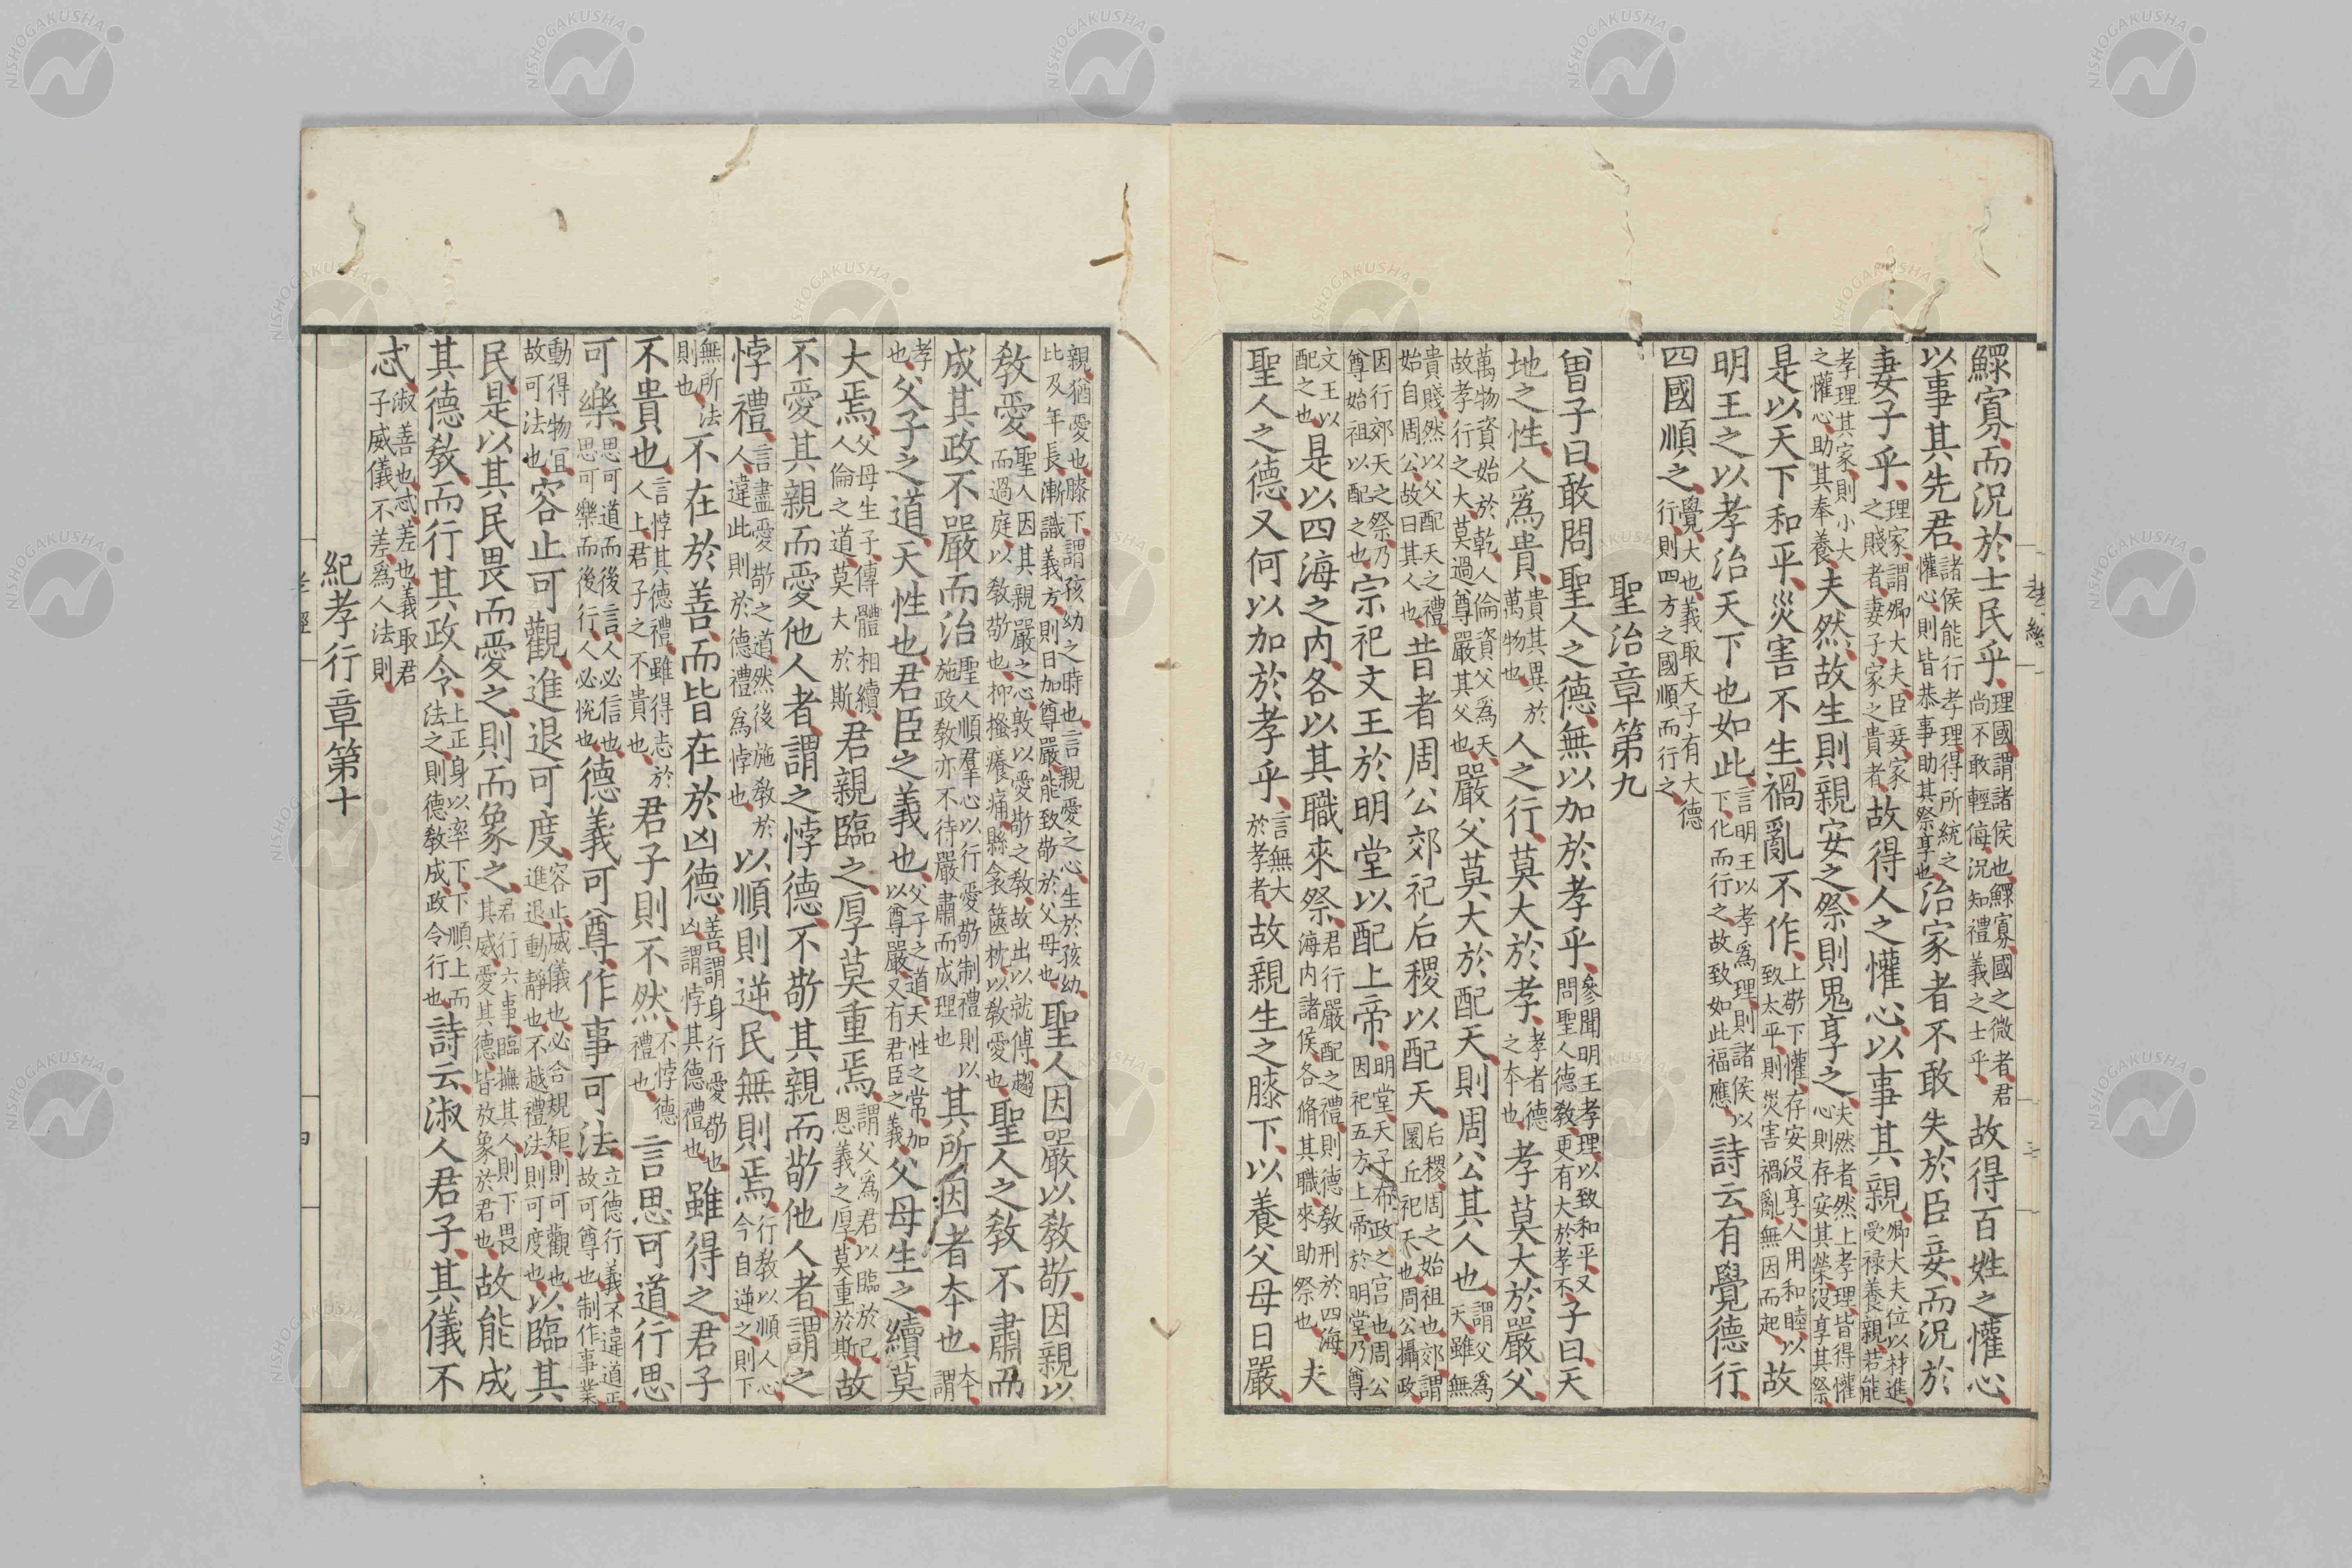 鰥寡而況於士民乎理國謂諸侯也鰥寡國之微者君尚不敢輕侮況知禮義之士乎故得百姓之懽心
以事其先君諸侯能行孝理得所統之懽心則皆恭事助其祭享也治家者不敢失於臣妾而況於
妻子乎理家謂卿大夫臣妾家之賤者妻子家之貴者故得人之懽心以事其親卿大夫位以材進受禄養親若能
孝理其家則小大之懽心助其奉養夫然故生則親安之祭則鬼享之夫然者然上孝理皆得懽心則存安其榮沒享其祭
是以天下和平災害不生禍亂不作上敬下懽存安沒享人用和睦以致太平則災害禍亂無因而起故
明王之以孝治天下也如此言明王以孝爲理則諸侯以下化而行之故致如此福應詩云有覺德行
四國順之覺大也義取天子有大德行則四方之國順而行之
聖治章第九
曾子曰敢問聖人之德無以加於孝乎參聞明王孝理以致和平又問聖人德敎更有大於孝不子曰天
地之性人爲貴貴其異於萬物也人之行莫大於孝孝者德之本也孝莫大於嚴父
萬物資始於乾人倫資父爲天故孝行之大莫過尊嚴其父也嚴父莫大於配天則周公其人也謂父爲天雖無
貴賤然以父配天之禮始自周公故曰其人也昔者周公郊祀后稷以配天后稷周之始祖也郊謂圜丘祀天也周公攝政
因行郊天之祭乃尊始祖以配之也宗祀文王於明堂以配上帝明堂天子布政之宫也周公因祀五方上帝於明堂乃尊
文王以配之也是以四海之内各以其職來祭君行嚴配之禮則德敎刑於四海海内諸侯各脩其職來助祭也夫
聖人之德又何以加於孝乎言無大於孝者故親生之膝下以養父母日嚴
親猶愛也膝下謂孩幼之時也言親愛之心生於孩幼比及年長漸識義方則日加尊嚴能致敬於父母也聖人因嚴以敎敬因親以
敎愛聖人因其親嚴之心敦以愛敬之敎故出以就傅趨而過庭以敎敬也抑搔癢痛縣衾篋枕以敎愛也聖人之敎不肅而
成其政不嚴而治聖人順羣心以行愛敬制禮則以施政敎亦不待嚴肅而成理也其所因者本也本謂
孝也父子之道天性也君臣之義也父子之道天性之常加以尊嚴又有君臣之義父母生之續莫
大焉父母生子傳體相續人倫之道莫大於斯君親臨之厚莫重焉謂父爲君以臨於己恩義之厚莫重於斯故
不愛其親而愛他人者謂之悖德不敬其親而敬他人者謂之
悖禮言盡愛敬之道然後施敎於人違此則於德禮爲悖也以順則逆民無則焉行敎以順人心今自逆之則下
無所法則也不在於善而皆在於凶德善謂身行愛敬也凶謂悖其德禮也雖得之君子
不貴也言悖其德禮雖得志於人上君子之不貴也君子則不然不悖德禮也言思可道行思
可樂思可道而後言人必信也思可樂而後行人必悅也德義可尊作事可法立德行義不違道正故可尊也制作事業
動得物宜故可法也容止可觀進退可度容止威儀也必合規矩則可觀也進退動靜也不越禮法則可度也以臨其
民是以其民畏而愛之則而象之君行六事臨撫其人則下畏其威愛其德皆放象於君也故能成
其德敎而行其政令上正身以率下下順上而法之則德敎成政令行也詩云淑人君子其儀不
忒淑善也忒差也義取君子威儀不差爲人法則
紀孝行章第十
孝經
NISHOGAKUSHA